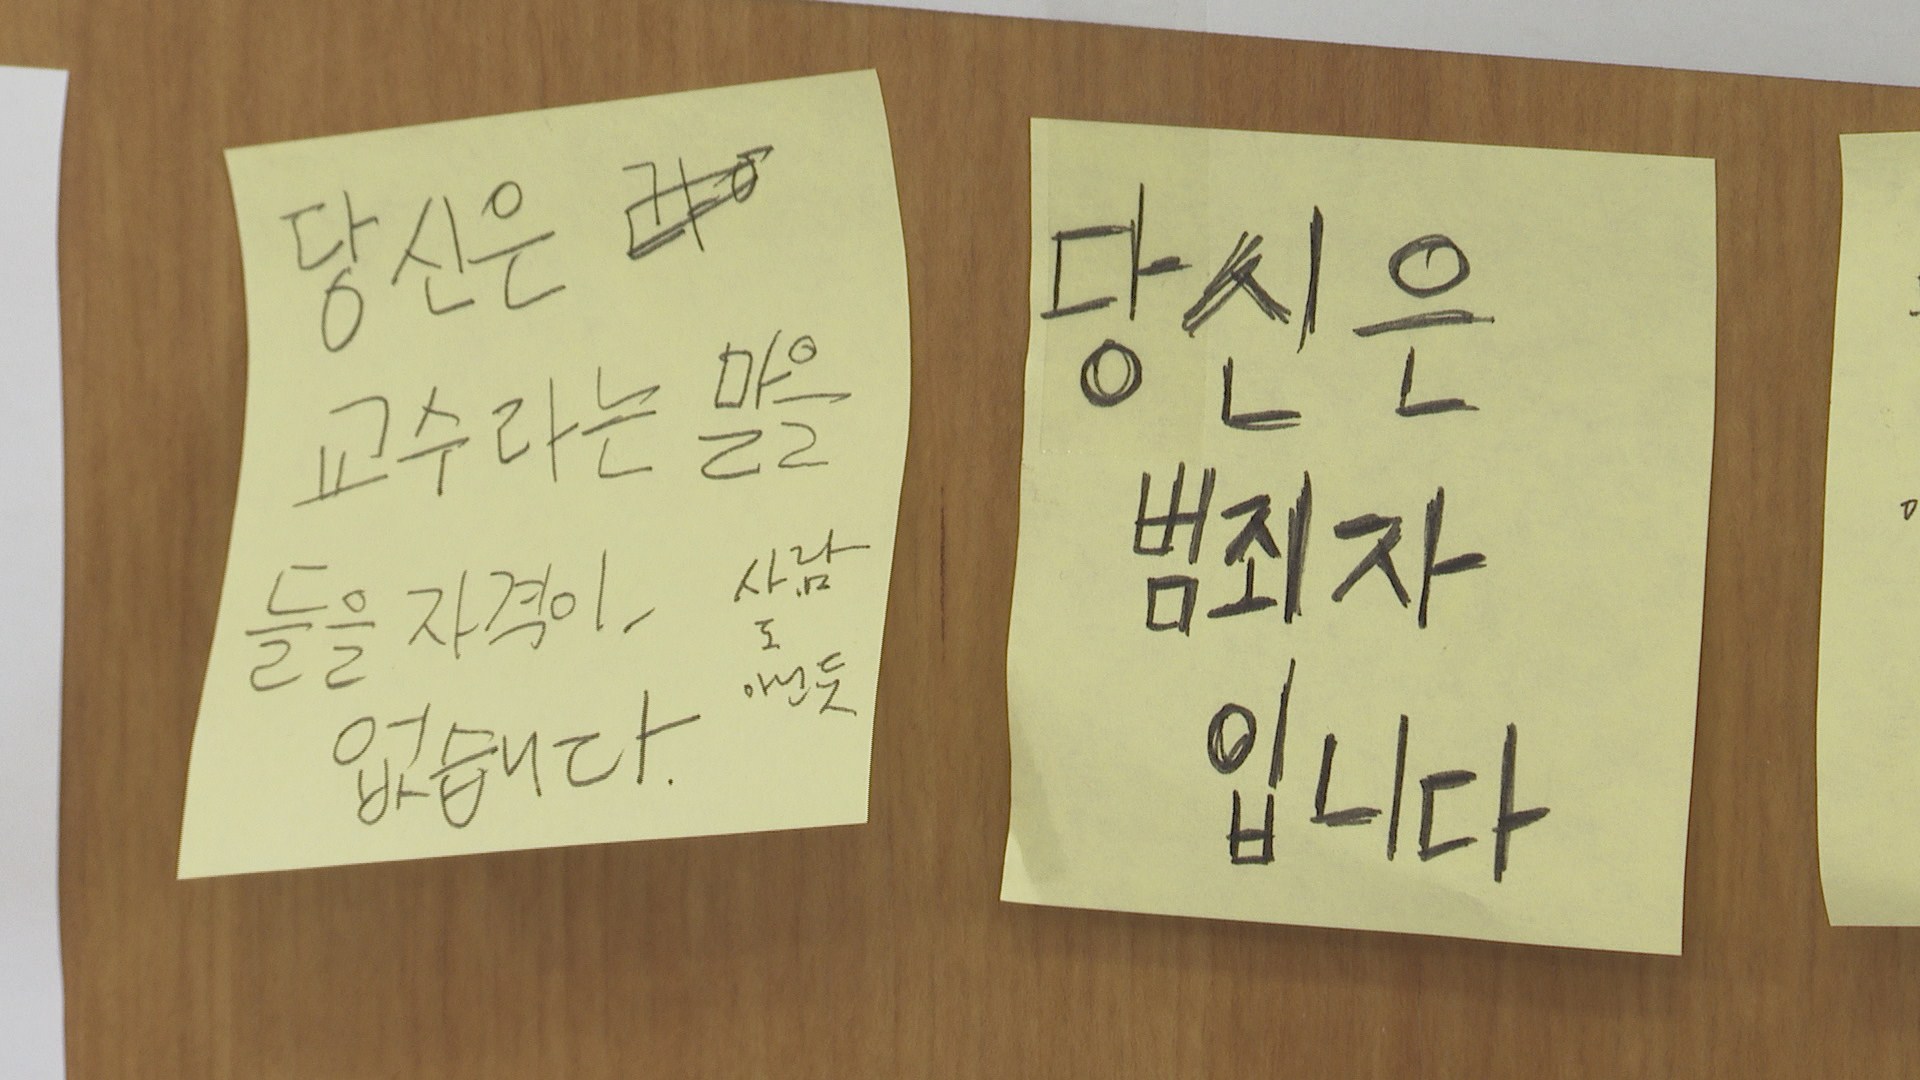 당신은
교수라는 말을
들을 자격이
없습니다.
사람
도
아닌듯
당신은
범죄자
입니다